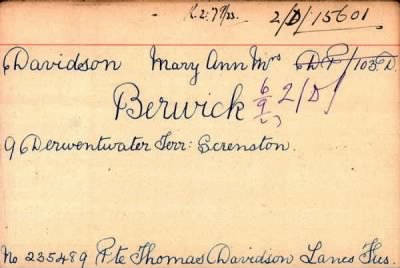 R. 2. 7/9/33. 2/D/15601
Davidson Mary Ann Mrs DP/103D.
Berwick 6/9/ 2/D/
9 Derwentwater Terr: Scremston.
No 235489 Pte Thomas Davidson Lancs Fus.